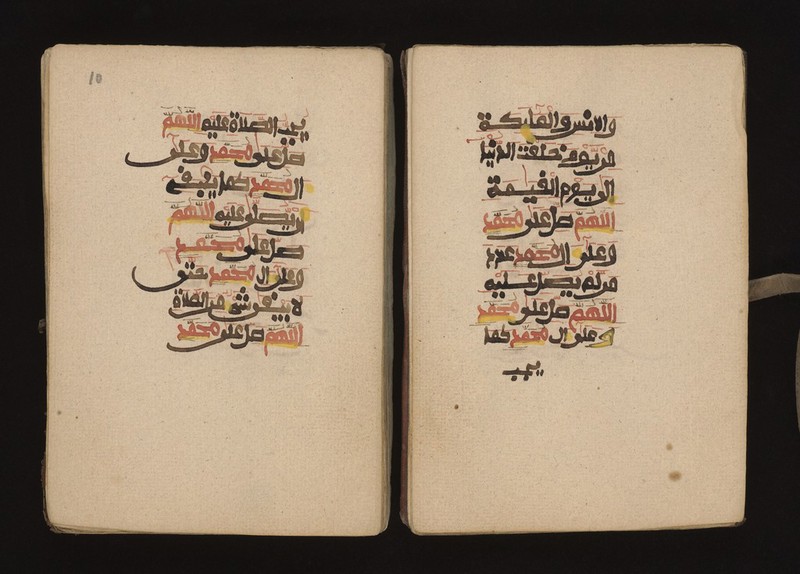 والانس والمليكة
من يوم خلقت الدنيا
الى يوم القيمة
اللهم صل على محمد
وعلى ال محمد عدد
من لم يصل عليه
اللهم صل على محمد
وعلى ال محمد كما
يجب
10
يجب الصلاة عليه اللهم
صل على محمد وعلى
ال محمد كما ينبغي
ان يصلى عليه اللهم
صل على محمد
وعلى ال محمد حتى
لا يبقى شى من الصلاة
اللهم صل على محمد